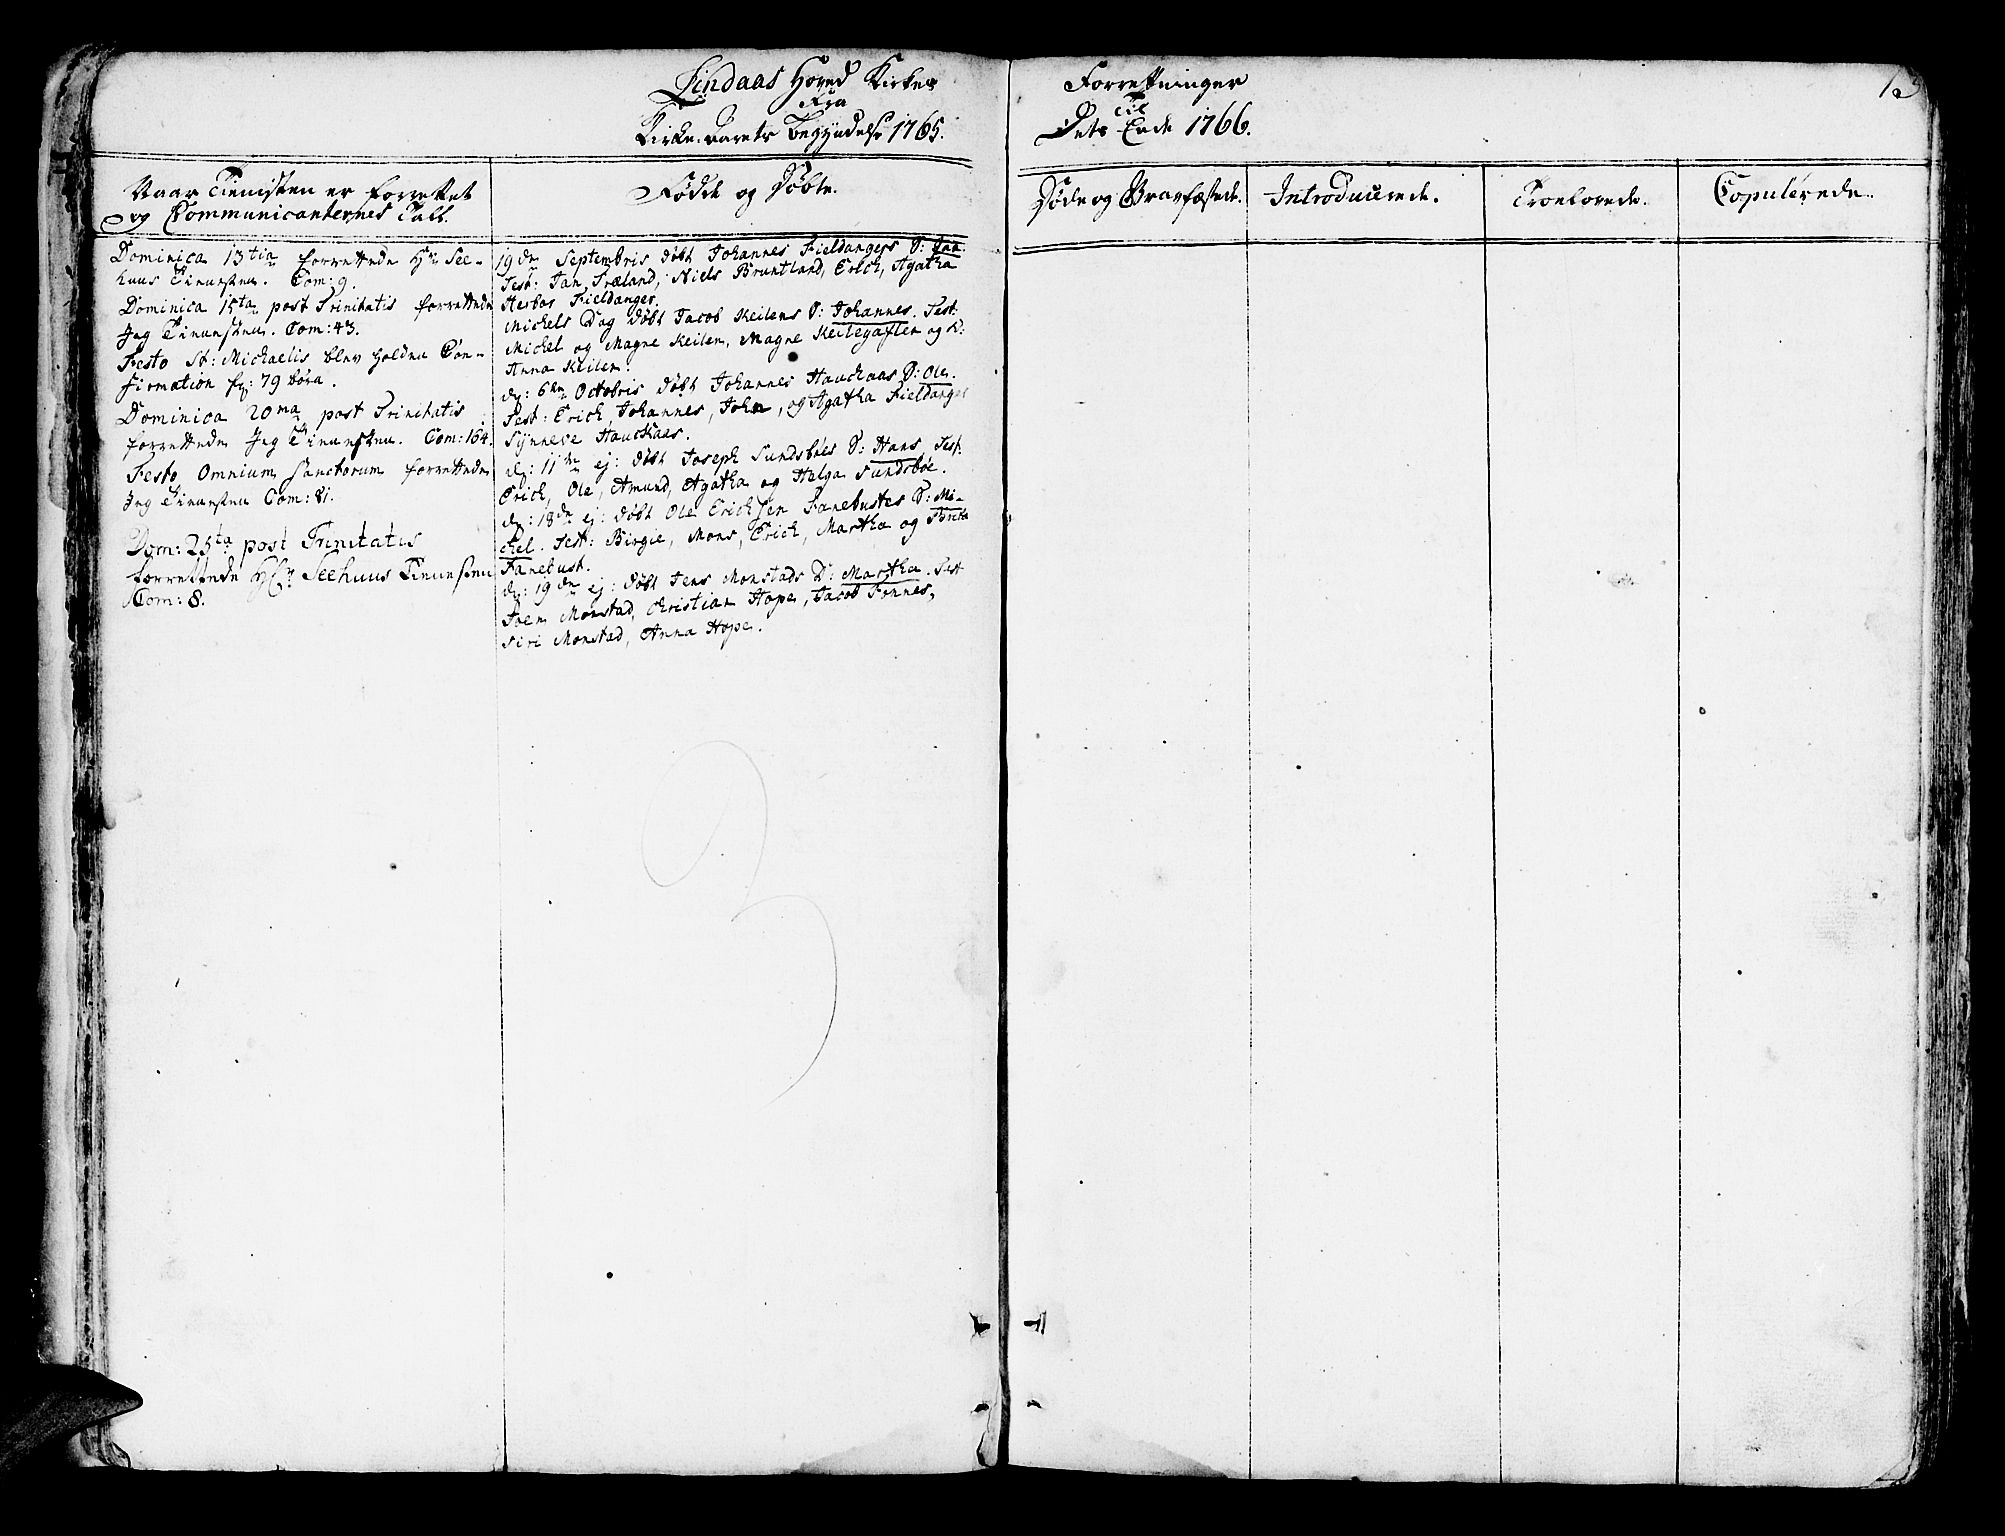 Lindaas Hoved Kirkes Forretninger
Fra Til
Kirke-Aarets Begyndelse 1765. Dets Ende 1766.
Naar Tienisten er forrettet
og Communicanternes Tall.
Dominica 13tia forrettede Hr: See-
huus Tienesten. Com: 9.
Dominica 15ta post Trinitatis forrettede
Jeg Tienesten. Com: 43.
Festo St: Michaelis blev holden Con-
firmation for 79 børn.
Dominica 20ma post Trinitatis
forrettede Jeg Tienesten. Com: 164.
Festo Omnium Sanctorum forrettede
Jeg Tienesten Com: 81.
Dom: 25ta post Trinitatis
forrettede Hr: Seehuus Tienesten
Com: 8.
Fødde og Døbte.
19de Septembris døbt Johannes Fieldangers S:
Test: Jan Træland, Niels Bruntland, Erich, Agatha
Herbor Fieldanger.
Michels Dag døbt Jacob Keilens S: Johannes. Test:
Michel og Magne Keilen, Magne Keilegaflen og
Anna Keilen.
d: 6te Octobris døbt Johannes Hauckaas S: Ole.
Test: Erich Johannes, John, og Agatha Fieldanger
Synneve Hauckaas.
d: 11te ej: døbt Joseph Sundsbøes S: Hans Test.
Erich, Ole, Amund, Agatha og Helga Sundsbøe.
d: 18de ej: døbt Ole Erichsen Fanebustes S: Mi-
chel. Test: Birgie, Mons, Erich, Martha og Brita
Fanebust.
d: 19de ej: døbt Jens Monstads D: Martha. Test
Joen Monstad, Christian Hope, Jacob Fonnes,
Siri Monstad, Anna Hope.
Døde og Gravfæstede.
Introducerede.
Troelovede.
Copulerede.